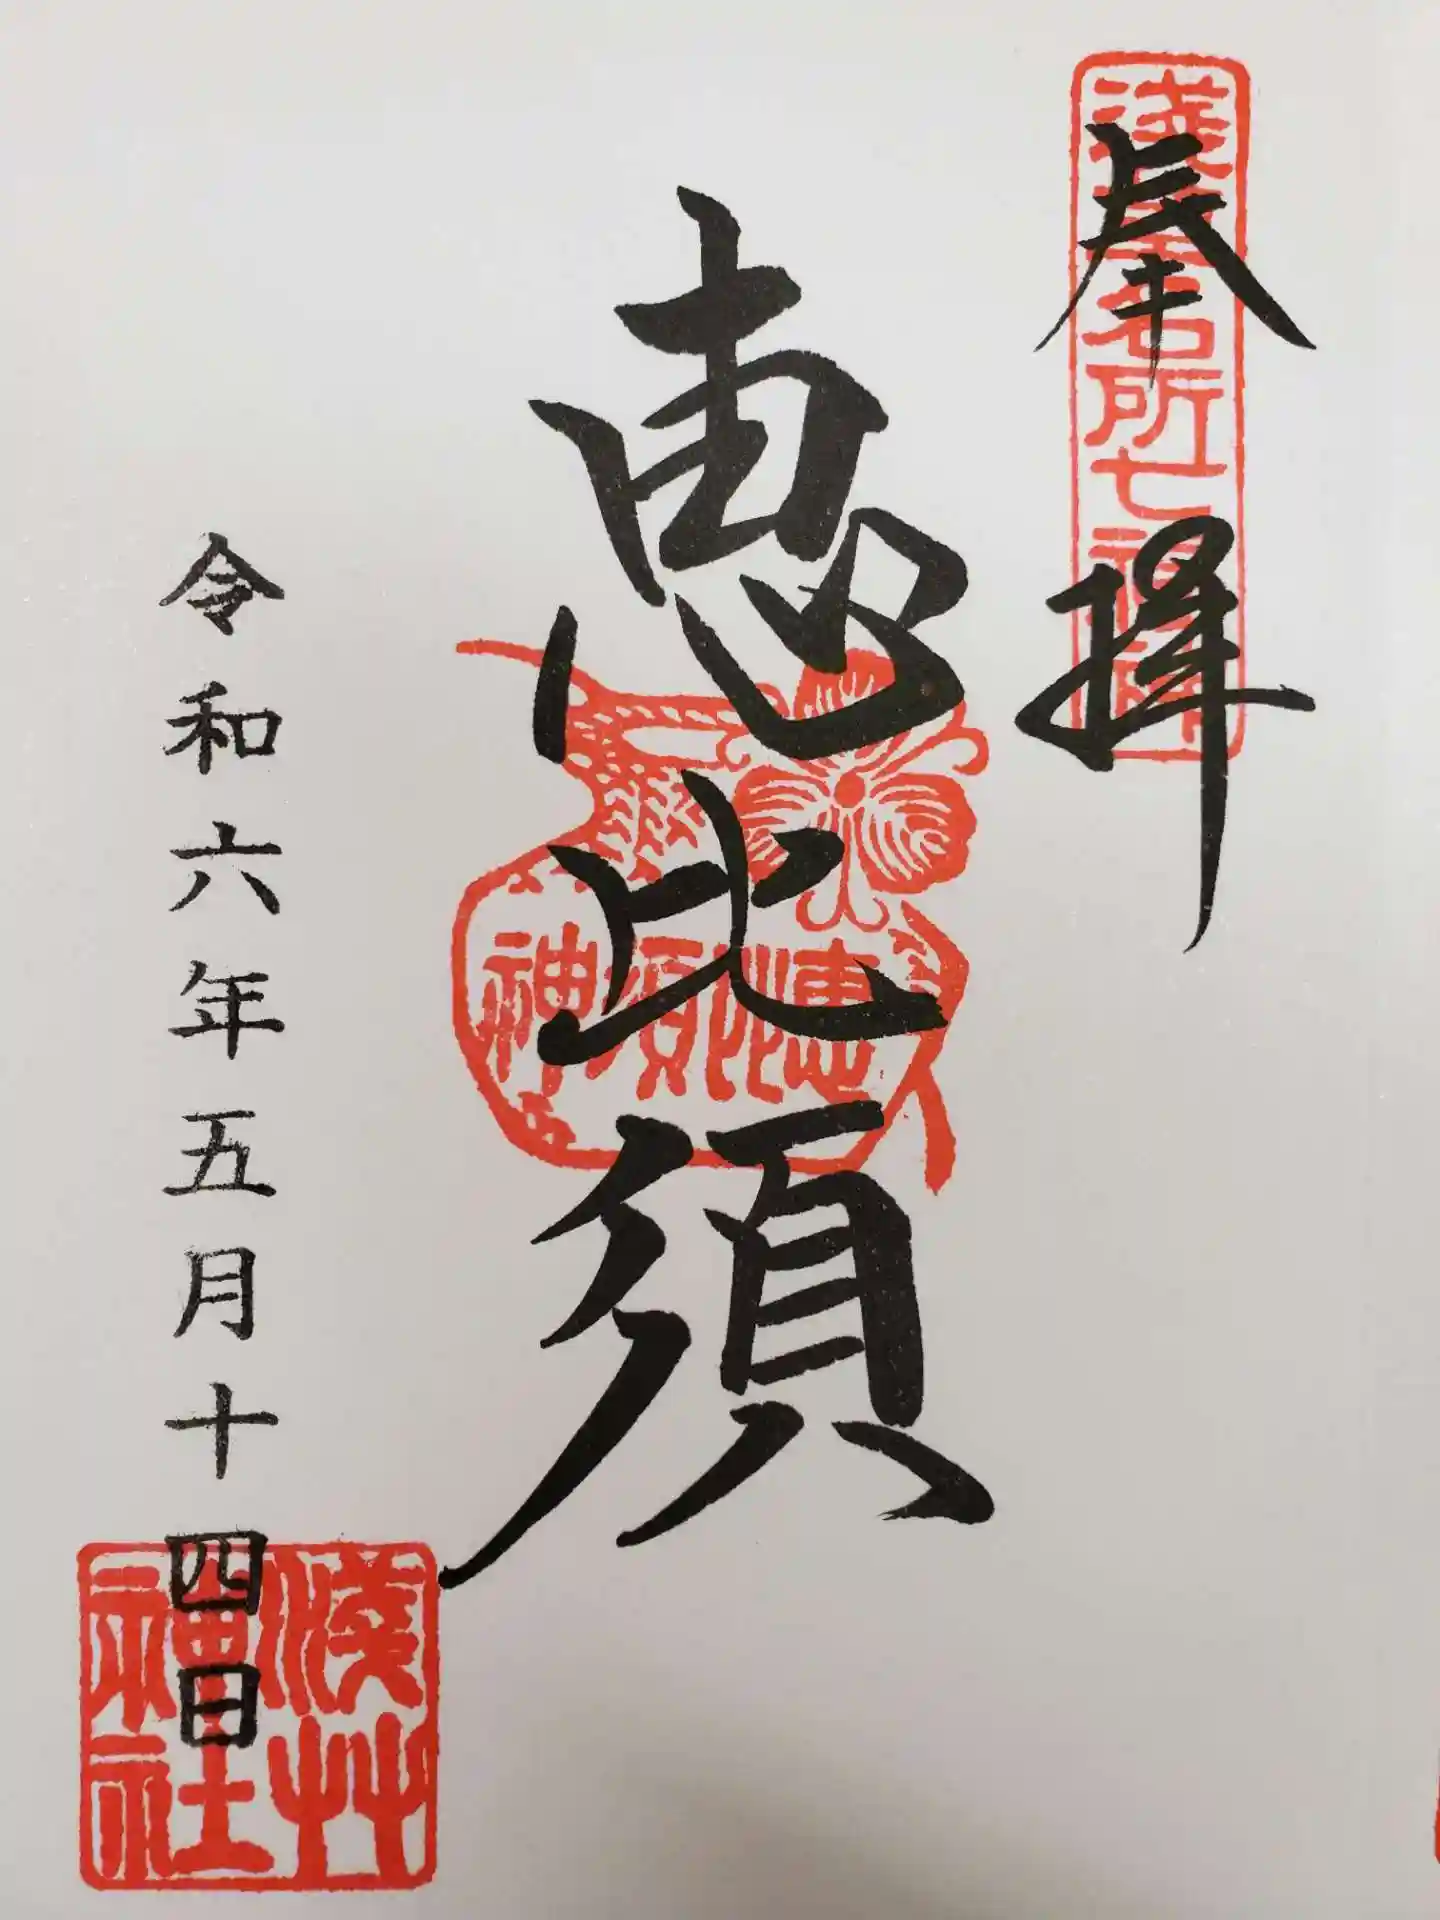 奉拝
浅草名所七福神
恵比須
恵比須神
令和六年五月十四日
浅草
神社